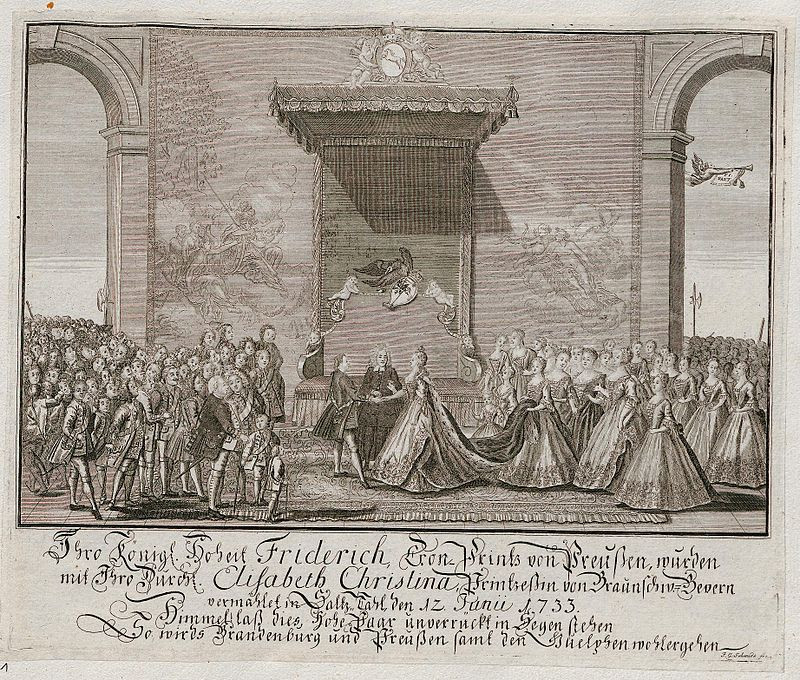 FAMA
Ihro Königl. Hoheit Friderich, Cron-Printz von Preußen, wurden
mit Ihro Durchl. Elisabeth Christina, Printzeßin von Braunschw-Bevern
vermählet in Saltz-Dahl den 12 Junii 1733.
Himmel! laß dies Hohe Paar unverruckt in Seegen stehen
So wirds Brandenburg und Preußen samt den Guelphen wohlergehen
J. G. Schmidt
1